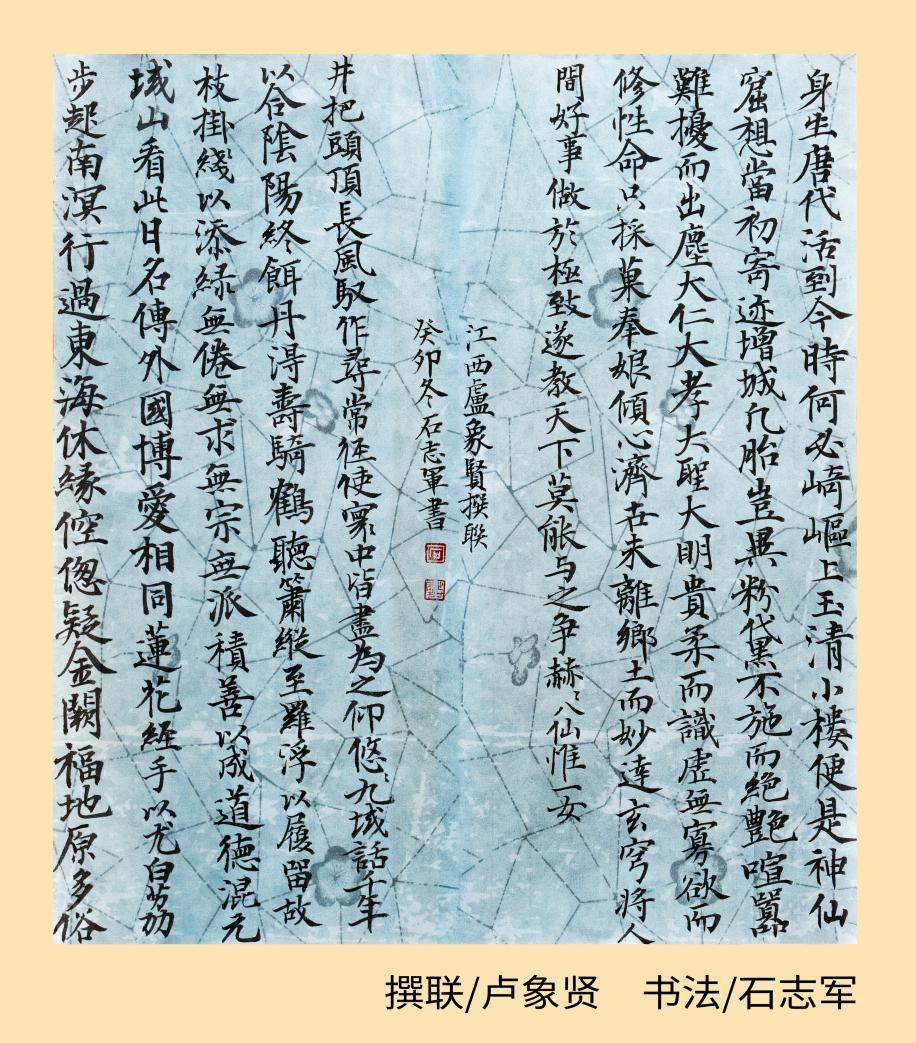 身生唐代活到今時何必崎嶇上玉清小樓便是神仙
窟想當初寄迹增城凡胎豈異粉黛不施而絶艷喧囂
難擾而出塵大仁大孝大聖大明貴柔而識虛無寡欲而
修性命只採菓奉娘傾心濟世未離鄉土而妙達玄穹將人
間好事做於極致遂教天下莫能与之争赫〻八仙惟一女
江西盧象賢撰聯
步起南溟行過東海休緣倥偬疑金闕福地原多俗
域山看此日名傳外國博愛相同蓮花經手以尤白芴
枝掛綫以添緑無倦無求無宗無派積善以成道德混元
以合陰陽終餌丹淂壽騎鶴聽簫縱至羅浮以履留故
井把頭頂長風馭作尋常径使寰中皆盡為之仰悠〻九域話千年
癸卯冬石志軍書
撰联/卢象贤 书法/石志军